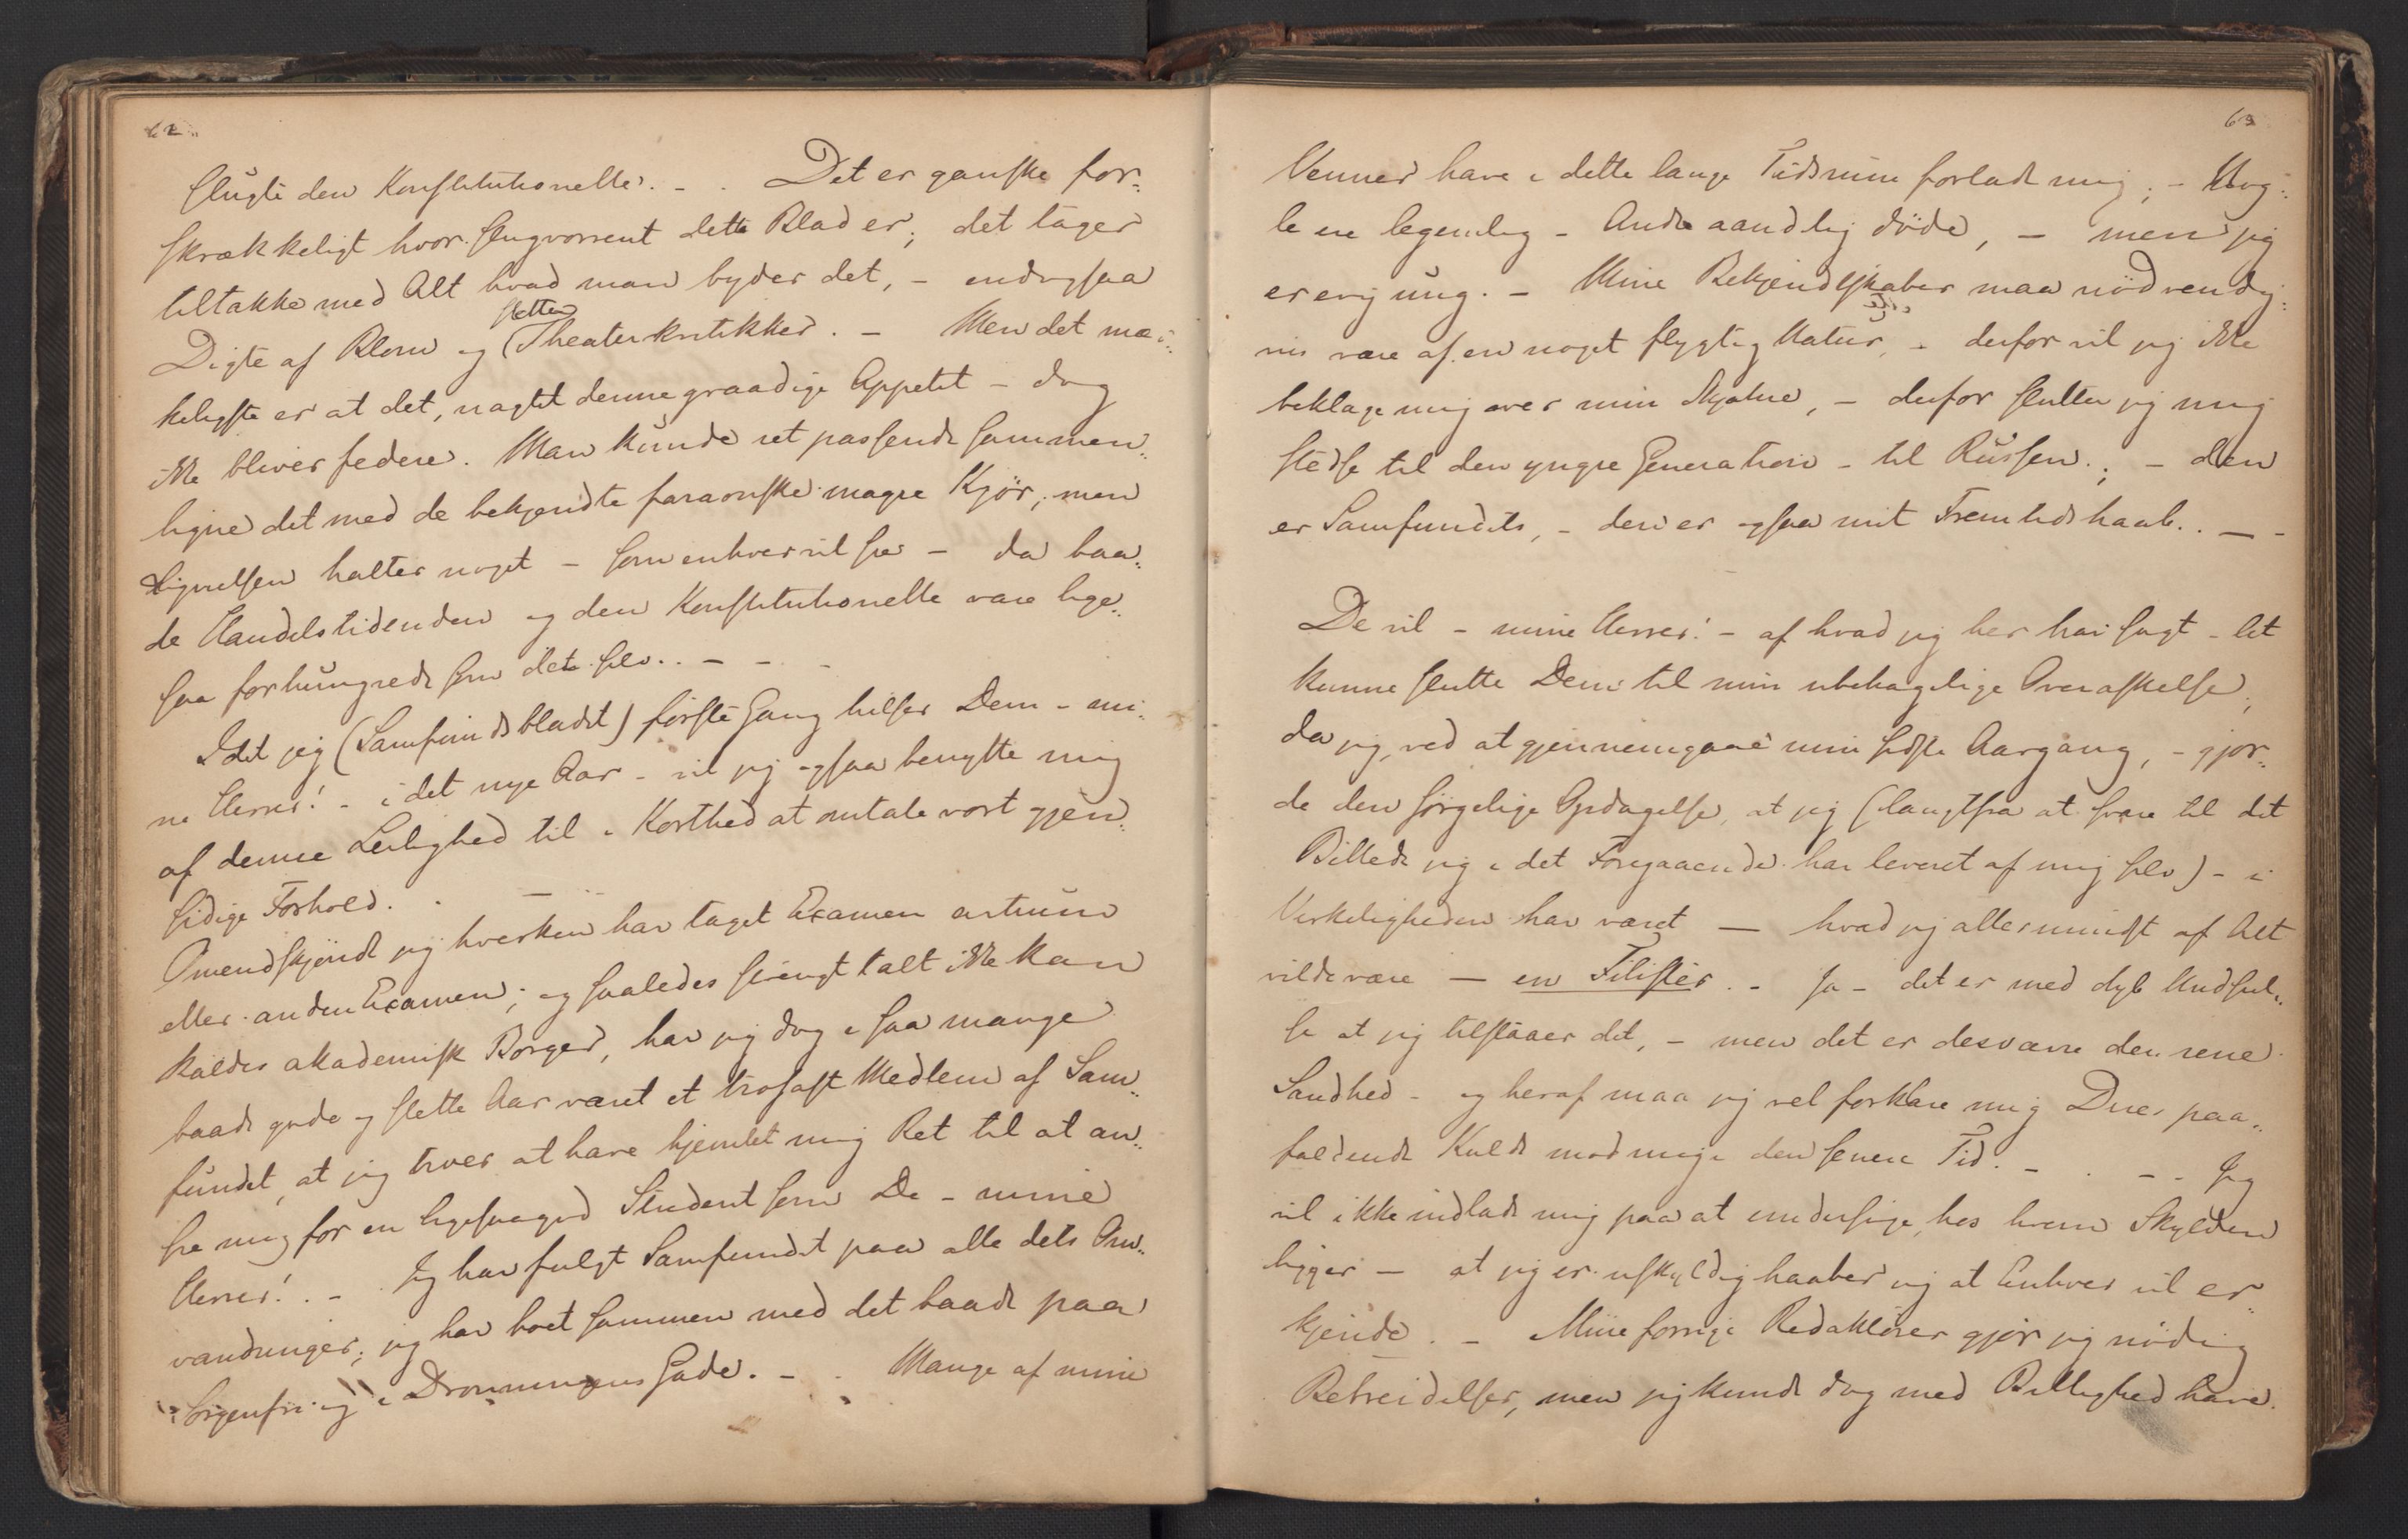 62
slugte den Konstitutionelle. - . Det er ganske for-
skrækkeligt hvor slugvorrent dette Blad er; det tager
tiltakke med Alt hvad man byder det, - endogsaa
Digte af Blom og slette Theaterkritikker. - Men det mær-
keligste er at det, uagtet denne graadige Appetit - dog
ikke bliver federe. Man kunde ret passende sammen-
ligne det med de bekjendte faraonske magre Kjør; men
Lignelsen halter noget - som enhver vil see - da baa-
de Handelstidenden og den Konstitutionelle vare lige-
saa forhungrede som det selv. . - - -
Idet jeg (Samfundsbladet) første Gang hilser Dem - mi-
ne Herrer! - i det nye Aar - vil jeg ogsaa benytte mig
af denne Leilighed til i Korthed at omtale vort gjen-
sidige Forhold. . -
Omendskjøndt jeg hverken har taget Examen artium
eller anden Examen; og saaledes strengt talt ikke kan
kaldes akademisk Borger, har jeg dog i saa mange
baade gode og slette Aar været et trofast Medlem af Sam-
fundet, at jeg troer at have hjemlet mig Ret til at an-
see mig for en ligesaagod Student som De - mine
Herrer! . - Jeg har fulgt Samfundet paa alle dets Om-
vandringer; jeg har boet sammen med det baade paa
"Sorgenfri" og i "Dronningens Gade. - . Mange af mine
63
Venner have i dette lange Tidsrum forladt mig; - Nog-
le ere legemlig - Andre aandlig døde, - men jeg
er evig ung. - Mine Bekjendtskaber maa nødvendig-
vis være af en noget flygtig Natur, - derfor vil jeg ikke
beklage mig over min Skjæbne, - derfor slutter jeg mig
stedse til den yngre Generation - til Russen. ; - den
er Samfundets, - den er ogsaa mit Fremtidshaab. . - -
De vil - mine Herrer! - af hvad jeg her har sagt - let
kunne slutte Dem til min ubehagelige Overaskelse,
da jeg, ved at gjennemgaae min sidste Aargang, - gjor-
de den sørgelige Opdagelse, at jeg (langtfra at svare til det
Billede jeg i det Foregaaende har leveret af mig selv) - i
Virkeligheden har været - hvad jeg allermindst af Alt
vilde være - en Filister. - Ja - det er med dyb Undseel-
se at jeg tilstaaer det, - men det er desværre den rene
Sandhed - og heraf maa jeg vel forklare mig Deres paa-
faldende Kulde mod mig i den senere Tid. - . - - Jeg
vil ikke indlade mig paa at undersøge, hos hvem Skylden
ligger - at jeg er uskyldig haaber jeg at Enhver vil er-
kjende. - Mine forrige Redaktører gjør jeg nødig
Bebreidelser, men jeg kunde dog med Billighed have